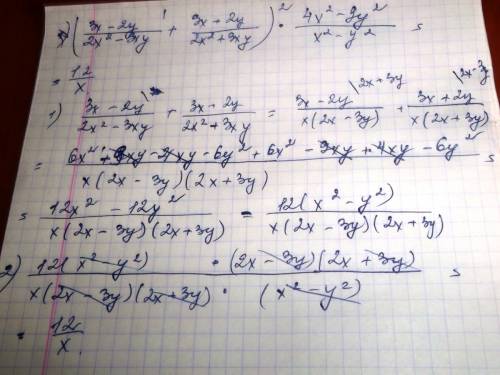 ( (3x - 2y)/(2x² - 3xy) + (3x + 2y)/(2x² + 3xy) )² · (4x² - 9y²)/(x² - y²) =
= 12/x
1) (3x - 2y)/(2x² - 3xy) + (3x + 2y)/(2x² + 3xy) = (3x - 2y)/(x(2x - 3y)) \2x+3y + (3x + 2y)/(x(2x + 3y)) \2x-3y
= (6x² + 9xy - 4xy - 6y² + 6x² - 9xy + 4xy - 6y²)/(x(2x - 3y)(2x + 3y)) =
= (12x² - 12y²)/(x(2x - 3y)(2x + 3y)) = 12(x² - y²)/(x(2x - 3y)(2x + 3y))
2) (12(x² - y²) · (2x - 3y)(2x + 3y))/(x(2x - 3y)(2x + 3y) · (x² - y²)) =
= 12/x.